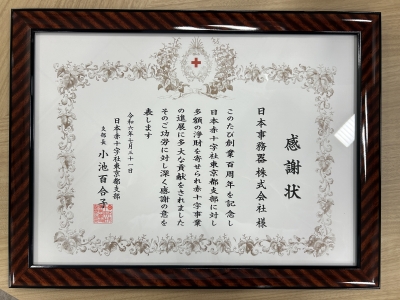 感謝状
日本事務器 株式会社 様
このたび創業百周年を記念し
日本赤十字社東京都支部に対し
多額の浄財を寄せられ赤十字事業
の進展に多大な貢献をされました
そのご功労に対し深く感謝の意を
表します
令和六年七月三十一日
日本赤十字社東京都支部
支部長 小池百合子